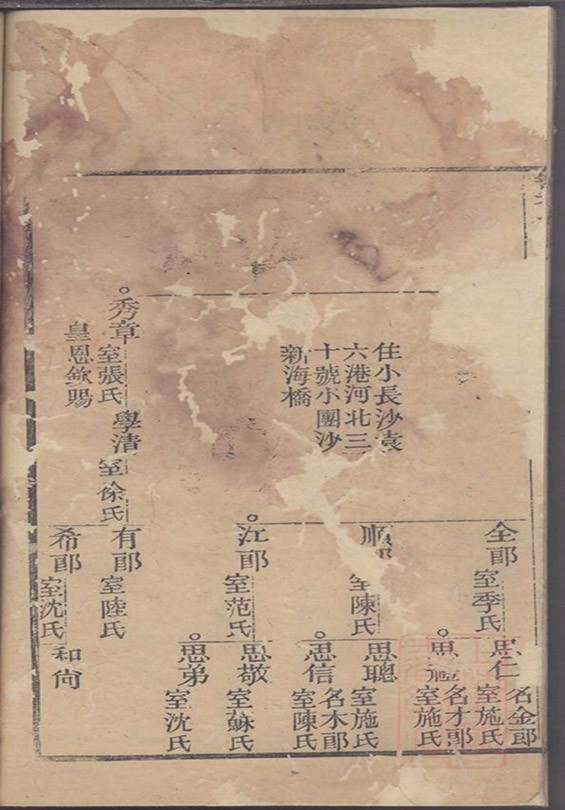 住小長沙袁
六港河北三
十號小團沙
新海橋
全郎
室季氏
思仁
名金郎
室施氏
思
名才郎
室施氏
順郎
室陳氏
思聰
室施氏
思信
名木郎
室陳氏
江郎
室范氏
思敬
室蘇氏
思弟
室沈氏
秀章
室張氏
皇恩欽賜
學清
室徐氏
有郎
室陸氏
希郎
室沈氏
和尚